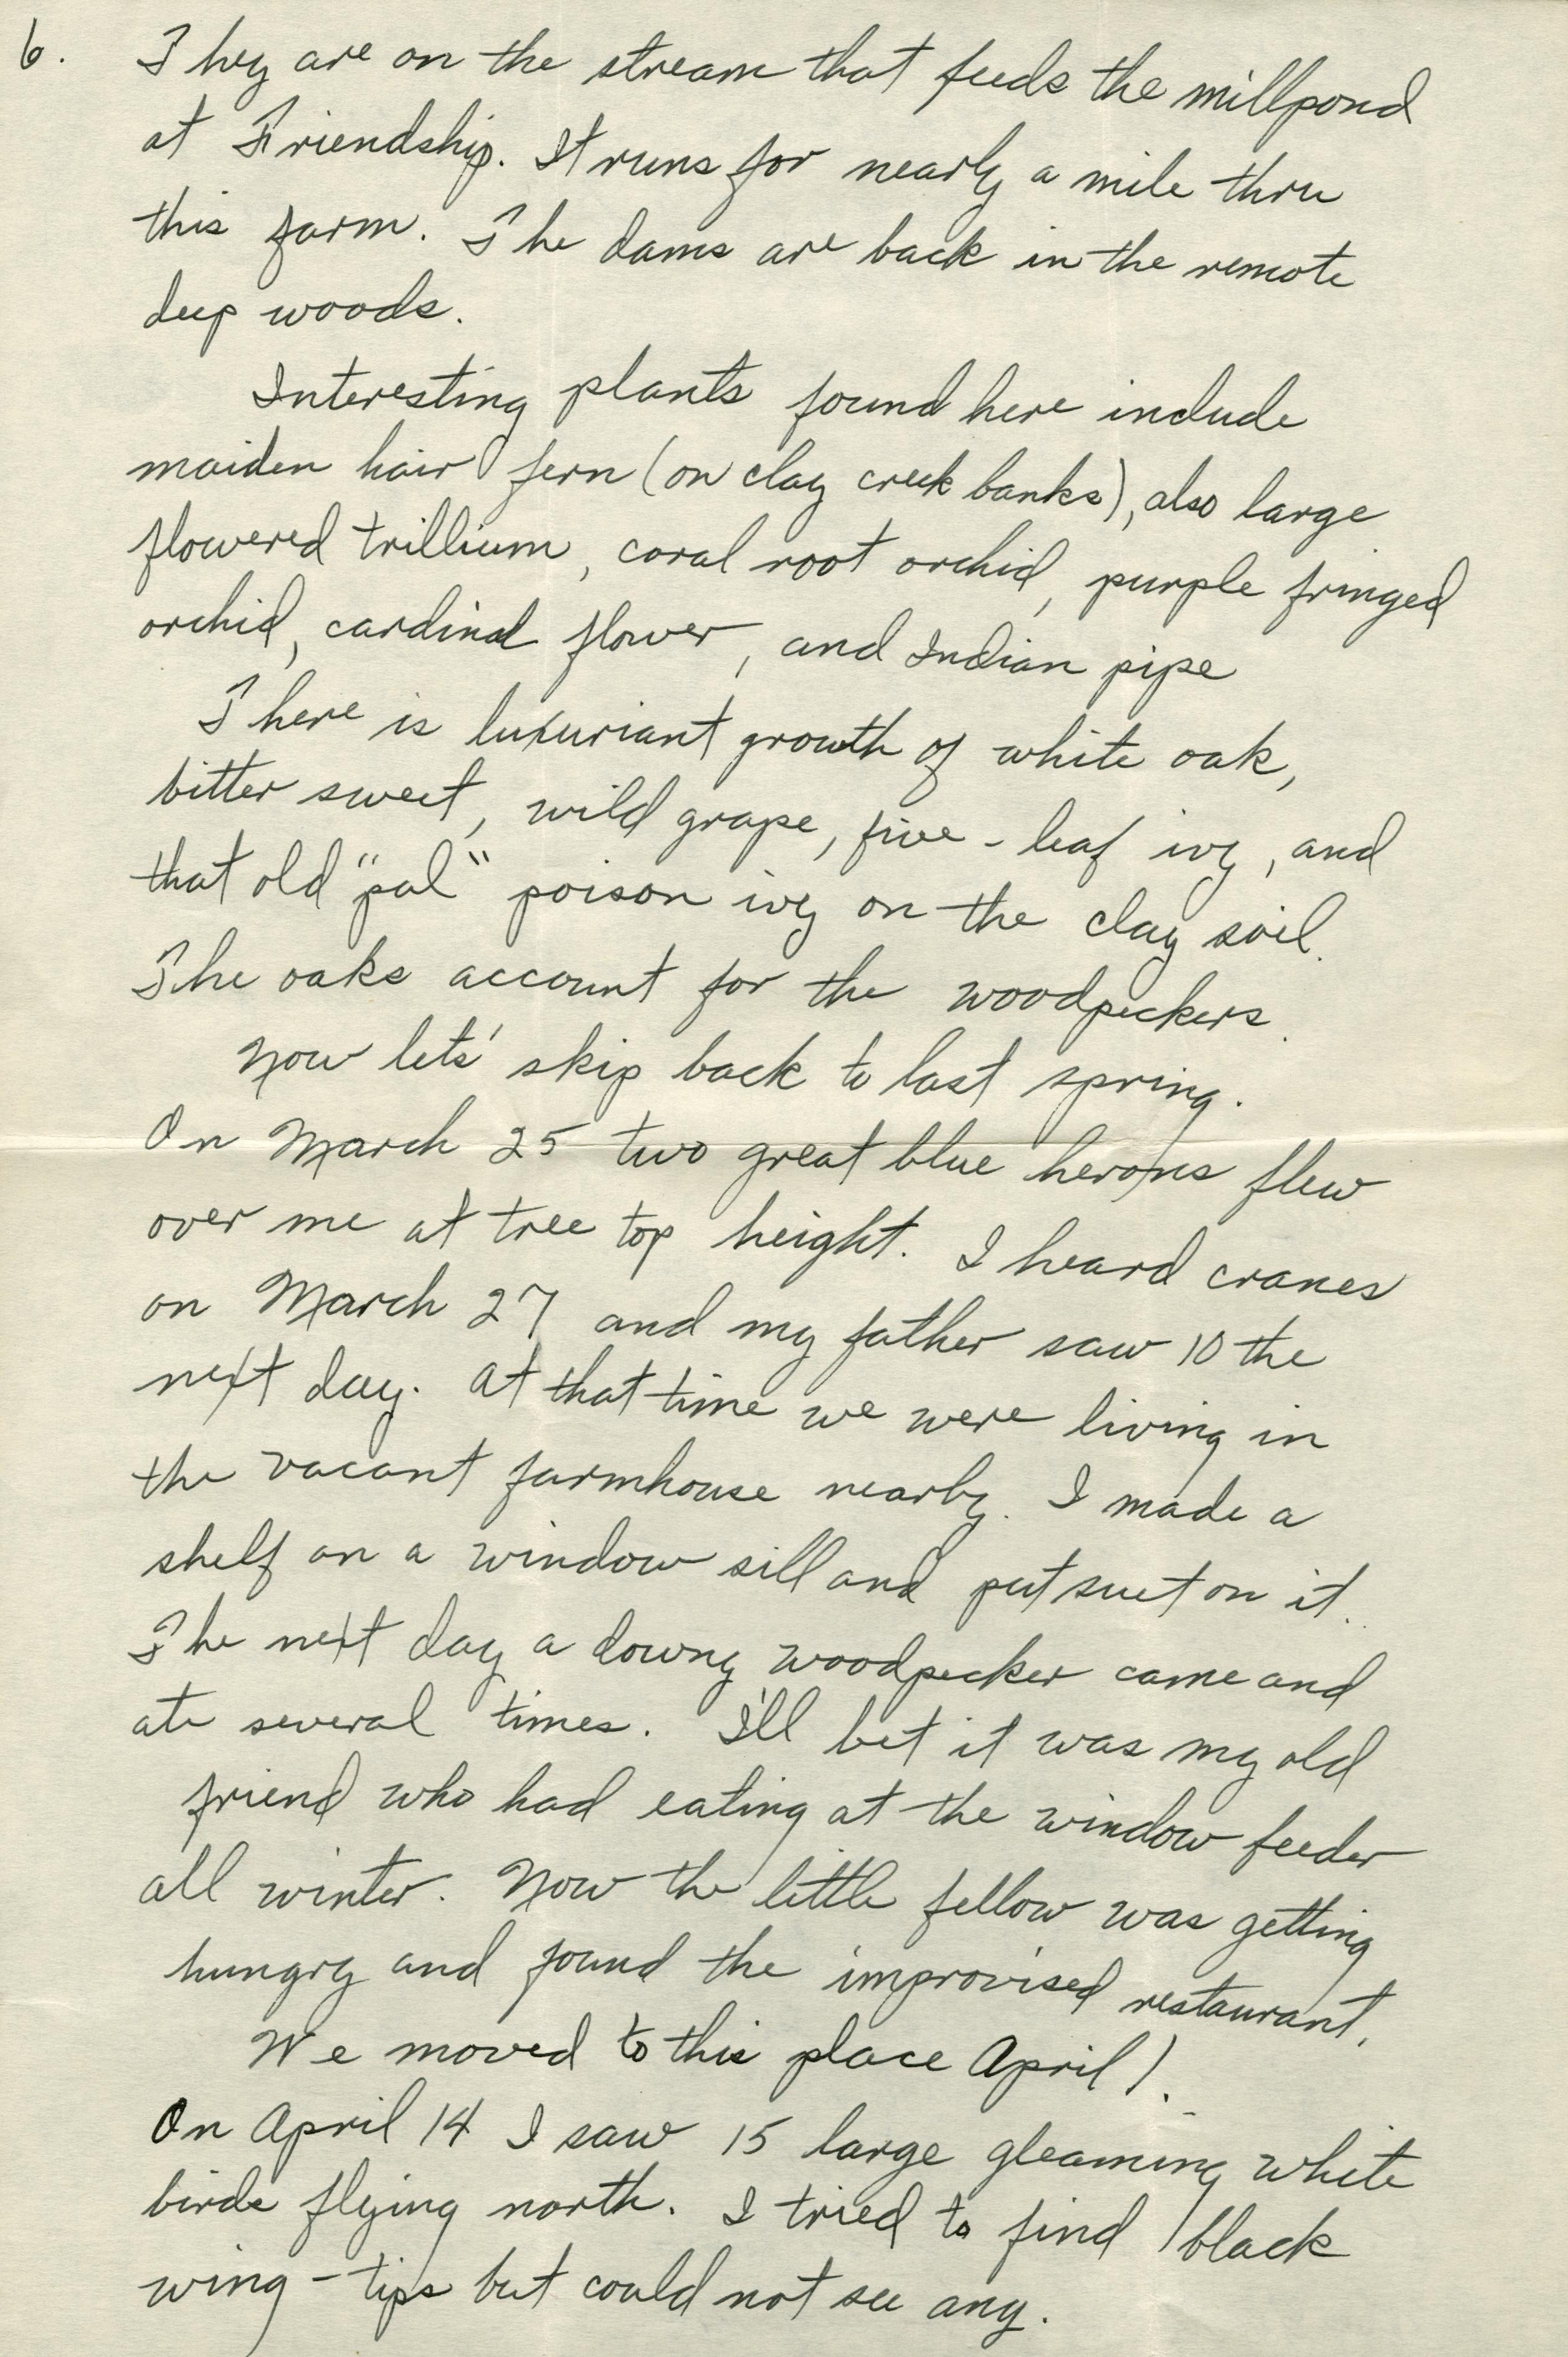 6. They are on the stream that feeds the millpond
at Friendship. It runs for nearly a mile thru
this farm. The dams are back in the remote
deep woods.
Interesting plants found here include
maiden hair fern (on clay creek banks), also large
flowered trillium, coral root orchid, purple fringed
orchid, cardinal flower, and Indian pipe
There is luxuriant growth of white oak,
bitter sweet, wild grape, five-leaf ivy, and
that old "pal" poison ivy on the clay soil.
The oaks account for the woodpeckers.
Now lets' skip back to last spring.
On March 25 two great blue herons flew
over me at tree top height. I heard cranes
on March 27 and my father saw 10 the
next day. At that time we were living in
the vacant farmhouse nearby. I made a
shelf on a window sill and put suet on it.
The next day a downy woodpecker came and
ate several times. I'll bet it was my old
friend who had eating at the window feeder
all winter. Now the little fellow was getting
hungry and found the improvised restaurant.
We moved to this place April 1.
On April 14 I saw 15 large gleaming white
birds flying north. I tried to find black
wing-tips but could not see any.